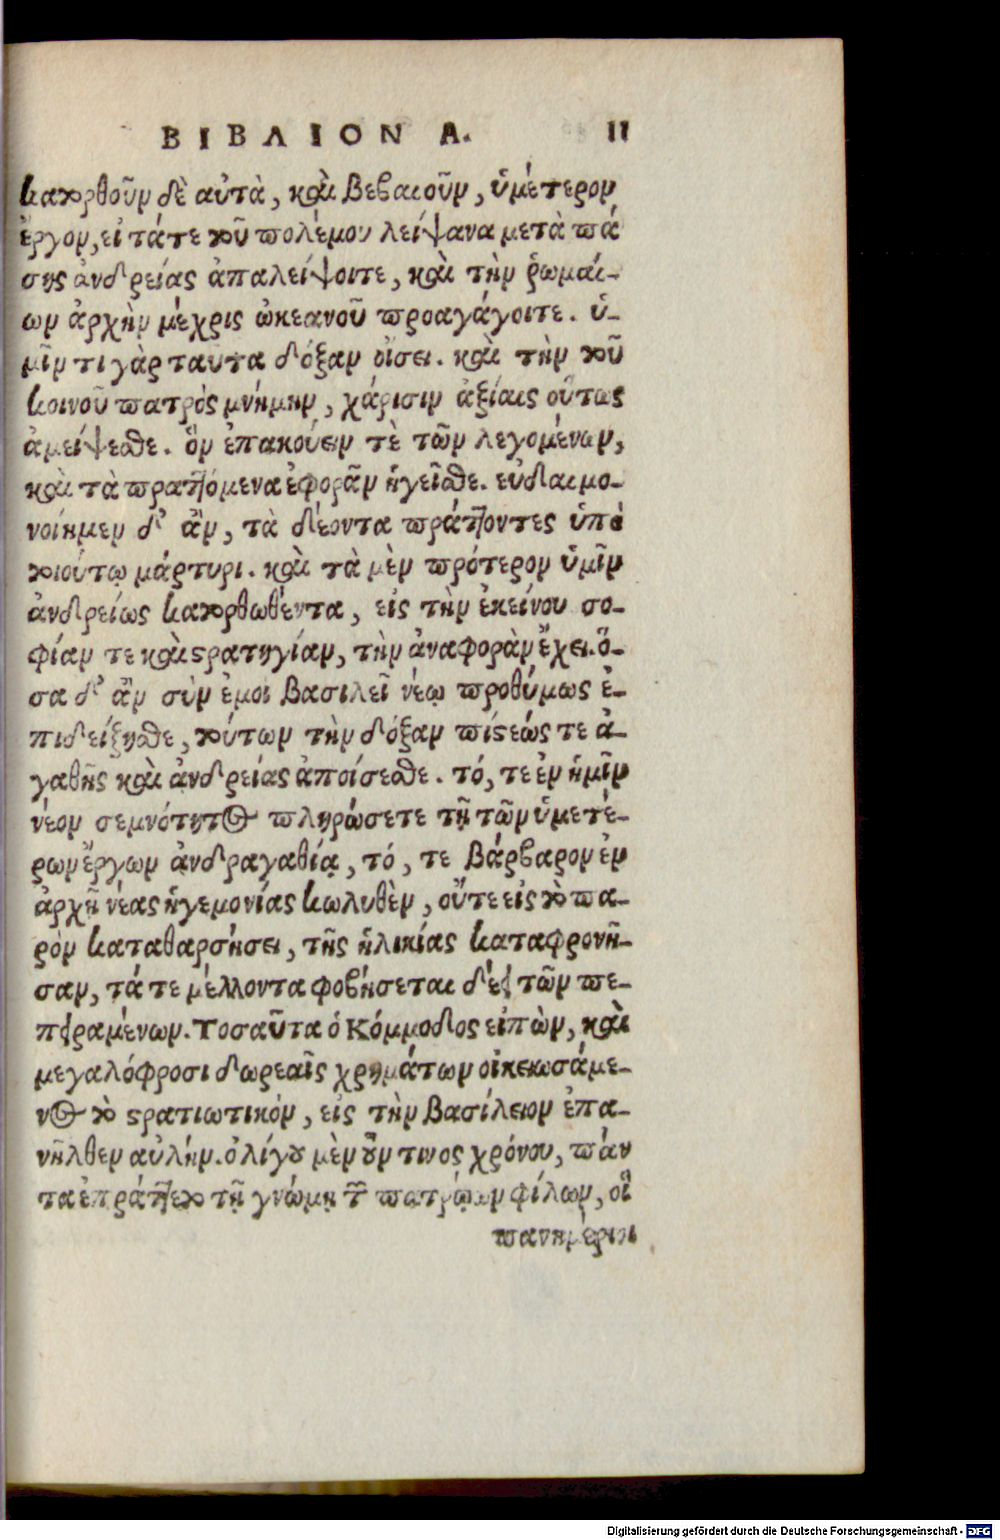 ΒΙΒΛΙΟΝ Α. 11
κατορθοῦν δὲ αὐτὰ, καὶ βεβαιοῦν, ὑμέτερον
ἔργον, εἰ τά τε τοῦ πολέμου λείψανα μετὰ πά
σης ἀνδρείας ἀπαλείψοιτε, καὶ τὴν ῥωμαί-
ων ἀρχὴν μέχρις ὠκεανοῦ προαγάγοιτε. ὑ-
μῖν τι γὰρ ταῦτα δόξαν οἴσει. καὶ τὴν τοῦ
κοινοῦ πατρὸς μνήμην, χάρισιν ἀξίαις οὕτως
ἀμείψεσθε. ὃν ἐπακούειν τὲ τῶν λεγομένων,
καὶ τὰ πραττόμενα ἐφορᾶν ἡγεῖσθε. εὐδαιμο-
νοίημεν δ' ἂν, τὰ δέοντα πράττοντες ὑπὸ
τοιούτῳ μάρτυρι. καὶ τὰ μὲν πρότερον ὑμῖν
ἀνδρείως κατορθωθέντα, εἰς τὴν ἐκείνου σο-
φίαν τε καὶ στρατηγίαν, τὴν ἀναφορὰν ἔχει. ὅ-
σα δ' ἂν σὺν ἐμοι βασιλεῖ νέῳ προθύμως ἐ-
πιδείξησθε, τούτων τὴν δόξαν πίστεώς τε ἀ-
γαθῆς καὶ ἀνδρείας ἀποίσεσθε. τό, τε ἐν ἡμῖν
νέον σεμνότητος πληρώσετε τῇ τῶν ὑμετέ-
ρων ἔργων ἀνδραγαθίᾳ, τό, τε βάρβαρον ἐν
ἀρχῇ νέας ἡγεμονίας κωλυθὲν, οὔτε εἰς τὸ πα-
ρὸν καταθαρσήσει, τῆς ἡλικίας καταφρονῆ-
σαν, τά τε μέλλοντα φοβήσεται δέει τῶν πε-
πειραμένων. Τοσαῦτα ὁ Κόμμοδος εἰπὼν, καὶ
μεγαλόφροσι δωρεαῖς χρημάτων οἰκειωσάμε-
νος τὸ στρατιωτικόν, εἰς τὴν βασίλειον ἐπα-
νῆλθεν αὐλήν. ὀλίγου μὲν οὖν τινος χρόνου, πάν
τα ἐπράττετο τῇ γνώμῃ τῶν πατρῴων φίλων, οἳ
πανημέριοι
Digitalisierung gefördert durch die Deutsche Forschungsgemeinschaft - DFG